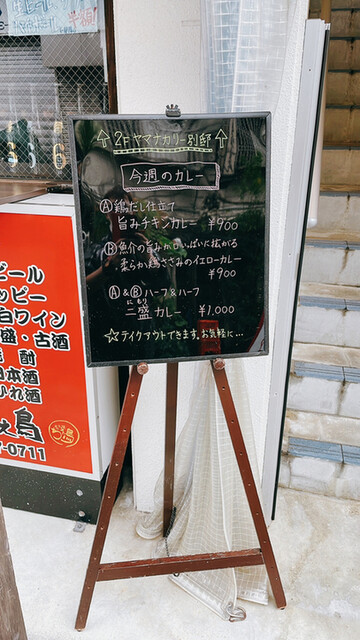 ⇧2Fヤマナカリー別邸⇧
今週のカレー
Ⓐ鶏だし仕立て
旨みチキンカレー ¥900
Ⓑ魚介の旨みが口いっぱいに拡がる
柔らか鶏ささみのイエローカレー
¥900
Ⓐ&Ⓑハーフ&ハーフ
にもり
二盛カレー ¥1,000
☆テイクアウトできます。お気軽に…
ビール
ッピー
白ワイン
盛・古酒
焼酎
日本酒
ひれ酒
鳥
-0711